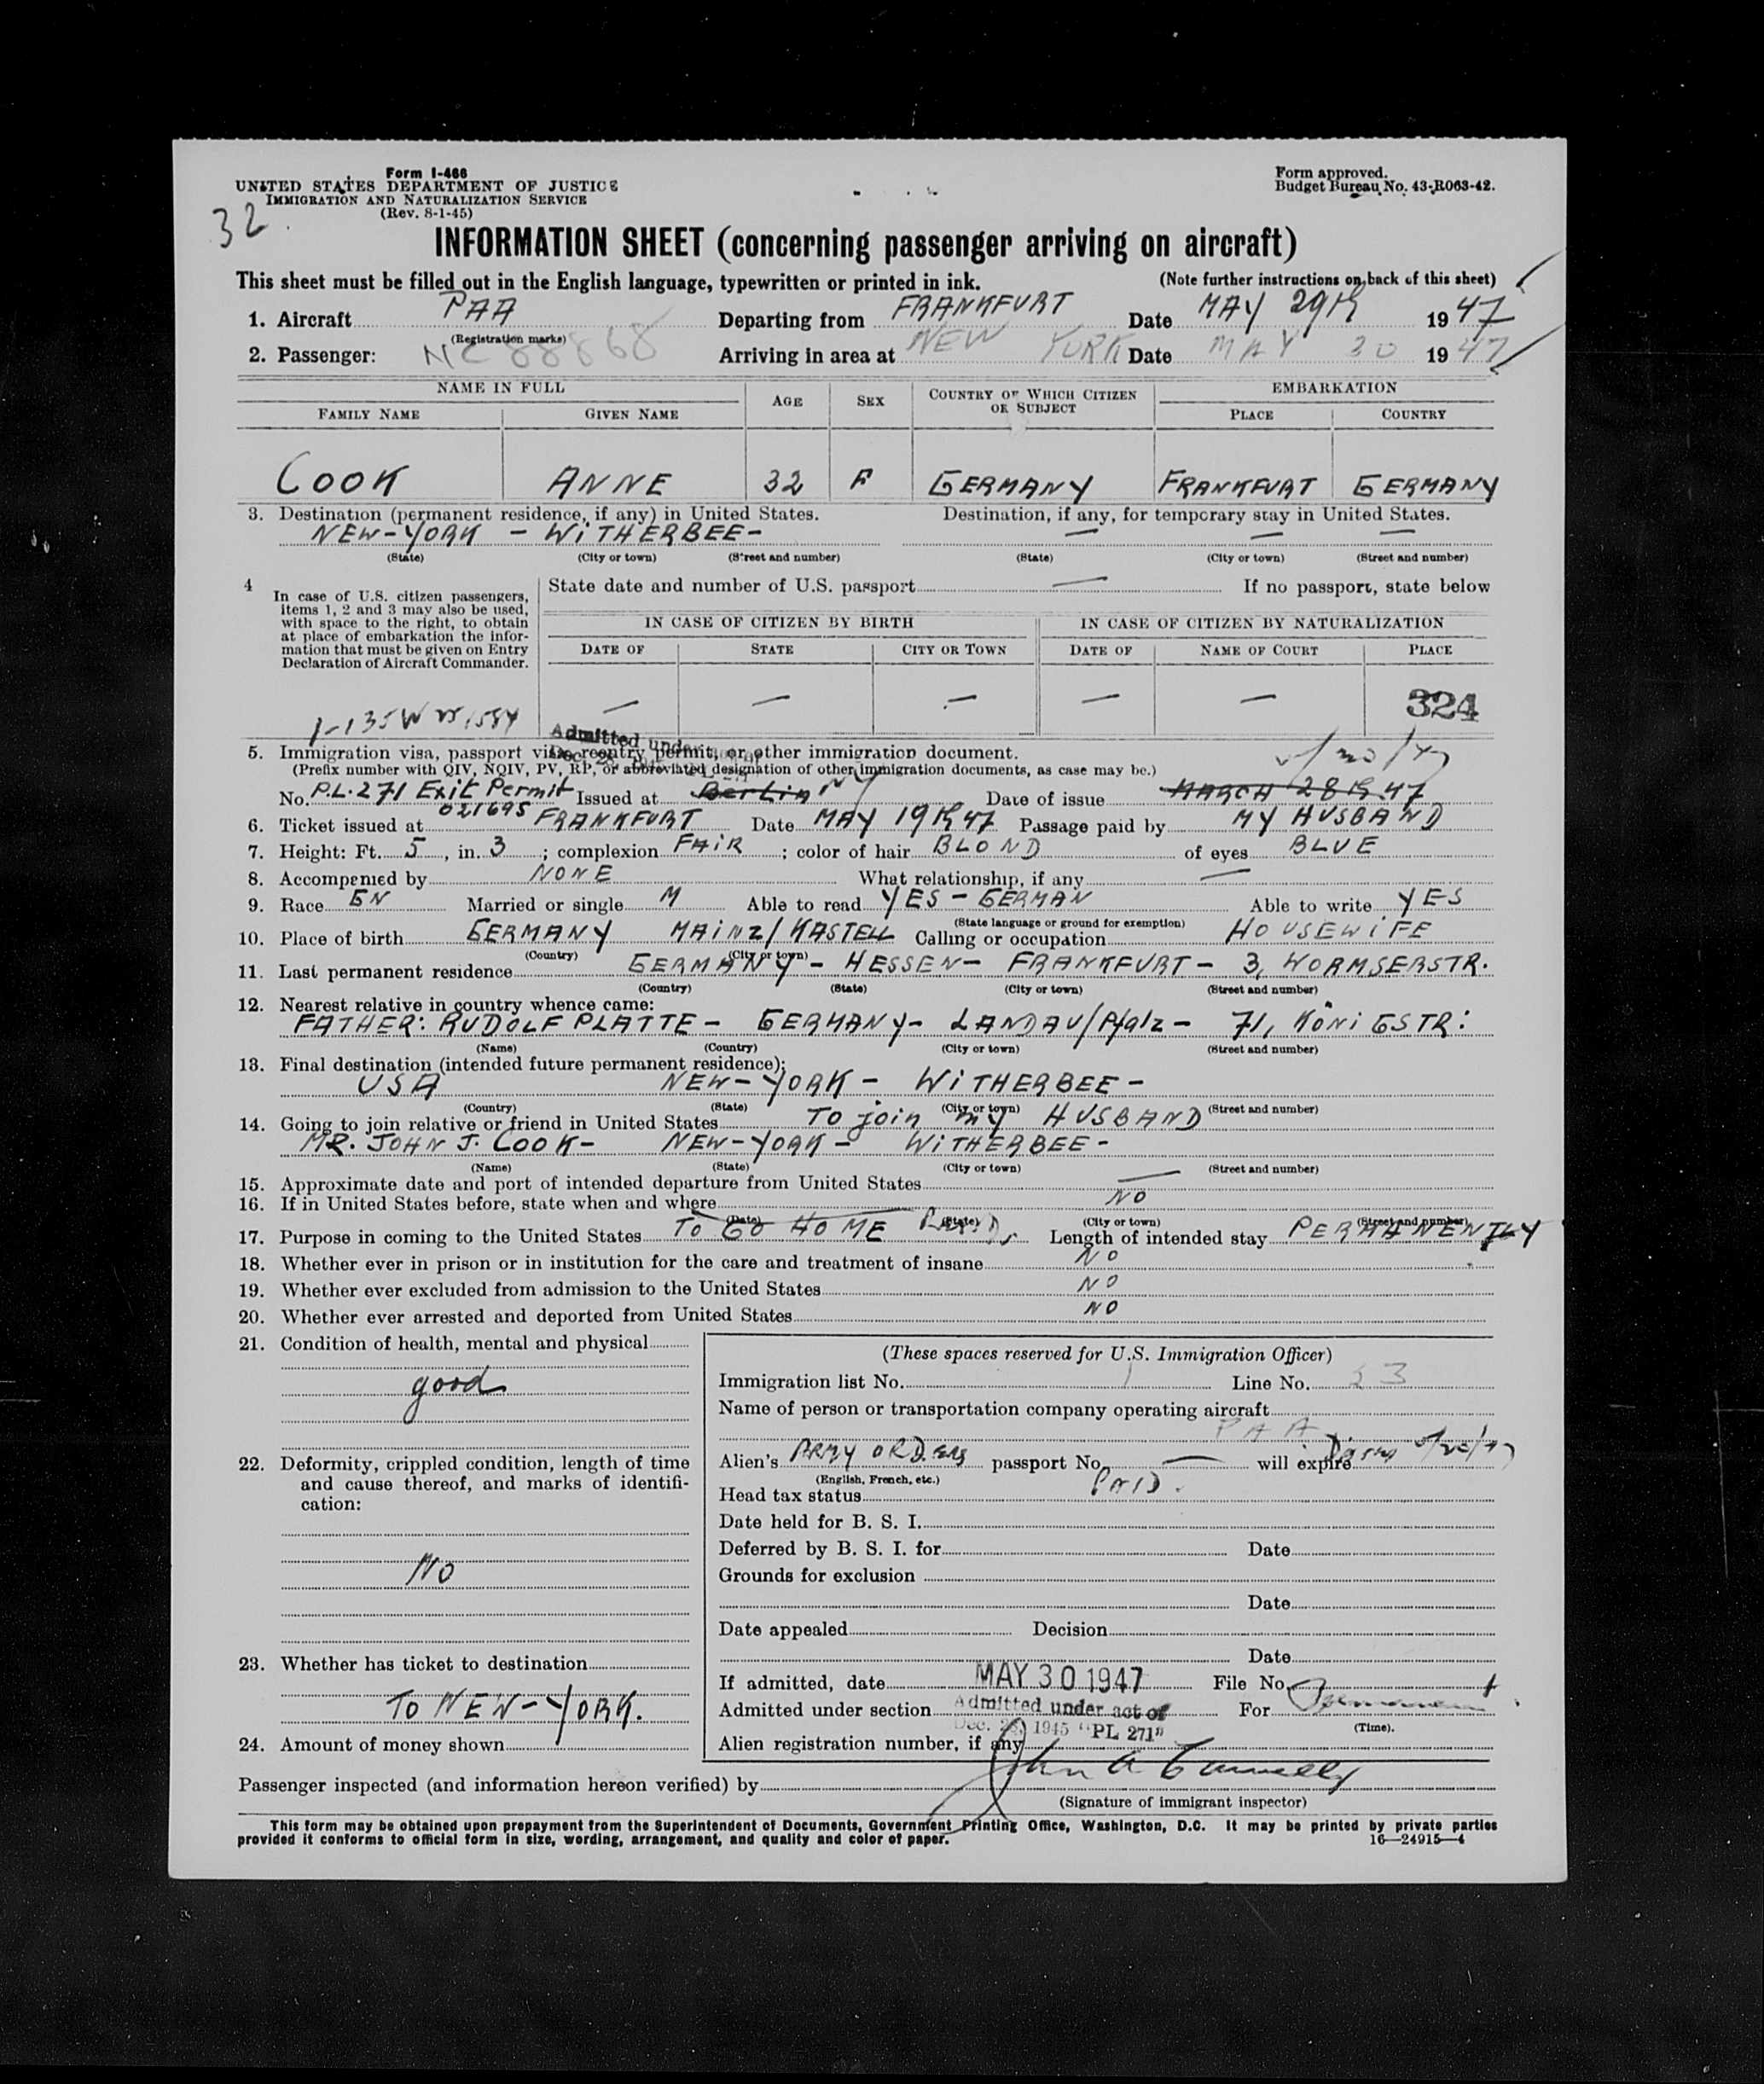 Form I-466
UNITED STATES DEPARTMENT OF JUSTICE
IMMIGRATION AND NATURALIZATION SERVICE
(Rev. 8-1-45)
Form approved.
Budget Bureau No. 43-R063-42.
32
INFORMATION SHEET (concerning passenger arriving on aircraft)
This sheet must be filled out in the English language, typewritten or printed in ink. (Note further instructions on back of this sheet)
1. Aircraft PAA Departing from FRANKFURT Date MAY 29th 1947
(Registration marks)
2. Passenger: NC 88868 Arriving in area at NEW YORK Date MAY 30 1947
NAME IN FULL AGE SEX COUNTRY OF WHICH CITIZEN OR SUBJECT EMBARKATION
FAMILY NAME GIVEN NAME PLACE COUNTRY
COOK ANNE 32 F GERMANY FRANKFURT GERMANY
3. Destination (permanent residence, if any) in United States. Destination, if any, for temporary stay in United States.
NEW-YORK - WiTHERBEE - — — —
(State) (City or town) (Street and number) (State) (City or town) (Street and number)
4 In case of U.S. citizen passengers, items 1, 2 and 3 may also be used, with space to the right, to obtain at place of embarkation the information that must be given on Entry Declaration of Aircraft Commander.
State date and number of U.S. passport — If no passport, state below
IN CASE OF CITIZEN BY BIRTH IN CASE OF CITIZEN BY NATURALIZATION
DATE OF STATE CITY OR TOWN DATE OF NAME OF COURT PLACE
— — — — — 324
Admitted under
5. Immigration visa, passport visa, reentry permit, or other immigration document.
(Prefix number with QIV, NQIV, PV, RP, or abbreviated designation of other immigration documents, as case may be.)
No. P.L. 271 Exit Permit Issued at Berlin NY Date of issue MARCH 28th 47
021695
6. Ticket issued at FRANKFURT Date MAY 19th 47 Passage paid by MY HUSBAND
7. Height: Ft. 5, in. 3; complexion FAiR; color of hair BLOND of eyes BLUE
8. Accompanied by NONE What relationship, if any —
9. Race GN Married or single M Able to read YES - GERMAN Able to write YES
(State language or ground for exemption)
10. Place of birth GERMANY MAiNZ/KASTELL Calling or occupation HOUSEWiFE
(Country) (City or town)
11. Last permanent residence GERMANY - HESSEN - FRANKFURT - 3, WORMSERSTR.
(Country) (State) (City or town) (Street and number)
12. Nearest relative in country whence came:
FATHER: RUDOLF PLATTE - GERMANY - LANDAU/Pfalz - 71, KÖNiGSTR:
(Name) (Country) (City or town) (Street and number)
13. Final destination (intended future permanent residence):
USA NEW-YORK - WiTHERBEE -
(Country) (State) (City or town) (Street and number)
14. Going to join relative or friend in United States To join my HUSBAND
MR. JOHN J. COOK - NEW-YORK - WiTHERBEE -
(Name) (State) (City or town) (Street and number)
15. Approximate date and port of intended departure from United States —
16. If in United States before, state when and where NO
(Date) (State) (City or town) (Street and number)
17. Purpose in coming to the United States TO GO HOME Length of intended stay PERMANENTLY
18. Whether ever in prison or in institution for the care and treatment of insane NO
19. Whether ever excluded from admission to the United States NO
20. Whether ever arrested and deported from United States NO
21. Condition of health, mental and physical
good
22. Deformity, crippled condition, length of time and cause thereof, and marks of identification:
NO
23. Whether has ticket to destination
TO NEW-YORK.
24. Amount of money shown
(These spaces reserved for U.S. Immigration Officer)
Immigration list No. 1 Line No. 23
Name of person or transportation company operating aircraft
PAA
Alien's ARMY ORDERS passport No. — will expire
(English, French, etc.)
Head tax status PAID.
Date held for B. S. I.
Deferred by B. S. I. for Date
Grounds for exclusion
Date
Date appealed Decision
Date
If admitted, date MAY 30 1947 File No.
Admitted under section Admitted under act of For Permanent
Dec. 28, 1945 "PL 271" (Time).
Alien registration number, if any
Passenger inspected (and information hereon verified) by
(Signature of immigrant inspector)
This form may be obtained upon prepayment from the Superintendent of Documents, Government Printing Office, Washington, D.C. It may be printed by private parties
provided it conforms to official form in size, wording, arrangement, and quality and color of paper. 16—24915—4